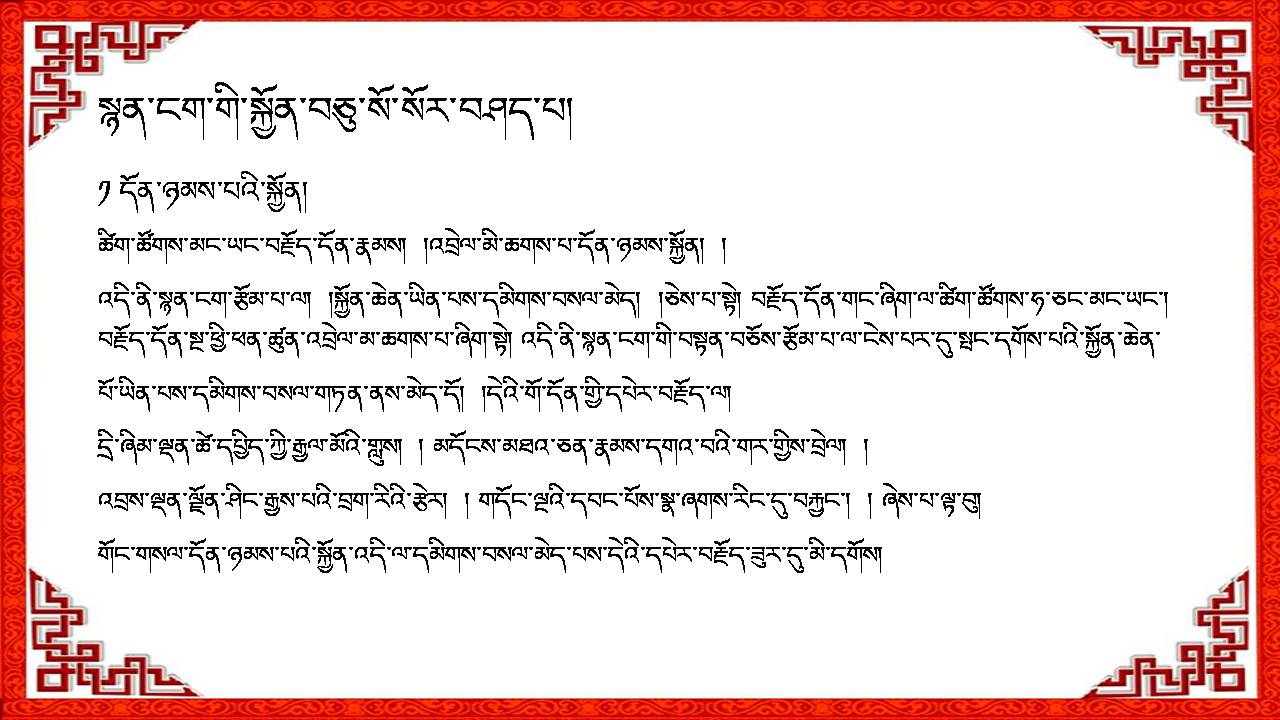 སྙན་ངག་གི་སྐྱོན་བཅུ་སོ་སོར་བཤད་པ།
༡ དོན་ཉམས་པའི་སྐྱོན།
ཚིག་ཚོགས་མང་ཡང་བརྗོད་དོན་རྣམས། །འབྲེལ་མི་ཆགས་པ་དོན་ཉམས་སྐྱོན། །
འདི་ནི་སྙན་ངག་རྩོམ་པ་ལ། །སྐྱོན་ཆེན་ཡིན་པས་དམིགས་བསལ་མེད། །ཅེས་པ་སྟེ། བརྗོད་དོན་གང་ཞིག་ལ་ཚིག་ཚོགས་ཧ་ཅང་མང་ཡང་།
བརྗོད་དོན་སྔ་ཕྱི་ཕན་ཚུན་འབྲེལ་མ་ཆགས་པ་ཞིག་སྟེ། འདི་ནི་སྙན་ངག་གི་བསྟན་བཅོས་རྩོམ་པ་ལ་ངེས་པར་དུ་སྤང་དགོས་པའི་སྐྱོན་ཆེན་
པོ་ཡིན་པས་དམིགས་བསལ་གཏན་ནས་མེད་དོ། །དེའི་གོ་དོན་གྱི་དཔེར་བརྗོད་ལ།
དྲི་ཞིམ་ལྡན་ཚེ་དཔྱིད་ཀྱི་རྒྱལ་མོའི་གླུས། །མདོངས་མཐའ་ཅན་རྣམས་དགའ་བའི་གར་གྱིས་བྲེལ། །
འབྲས་ལྡན་ལྗོན་ཤིང་རྒྱས་པའི་བྲག་རིའི་རྩེར། །གདོང་ལྔའི་དབང་པོས་སྣ་ཞགས་རིང་དུ་བརྐྱང་། །ཞེས་པ་ལྟ་བུ།
གོང་གསལ་དོན་ཉམས་པའི་སྐྱོན་འདི་ལ་དམིགས་བསལ་མེད་པས་དེའི་དཔེར་བརྗོད་ཟུར་དུ་མི་དགོས།